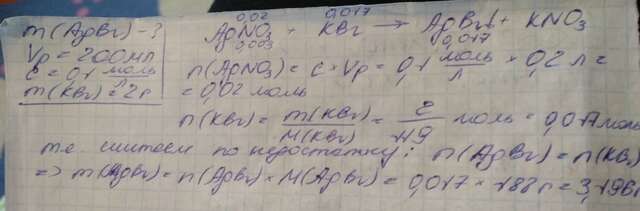 m(AgBr)-?
Vр = 200мл
c = 0,1 моль/л
m(KBr) = 2г
0,02 0,017
AgNO3 + KBr → AgBr↓ + KNO3
0,003 0,017
n(AgNO3) = c × Vр = 0,1 моль/л × 0,2 л =
= 0,02 моль
n(KBr) = m(KBr)/M(KBr) = 2/119 моль = 0,017 моль
т.е. считаем по недостатку: n(AgBr) = n(KBr)
=> m(AgBr) = n(AgBr) × M(AgBr) = 0,017 × 188 г = 3,196г